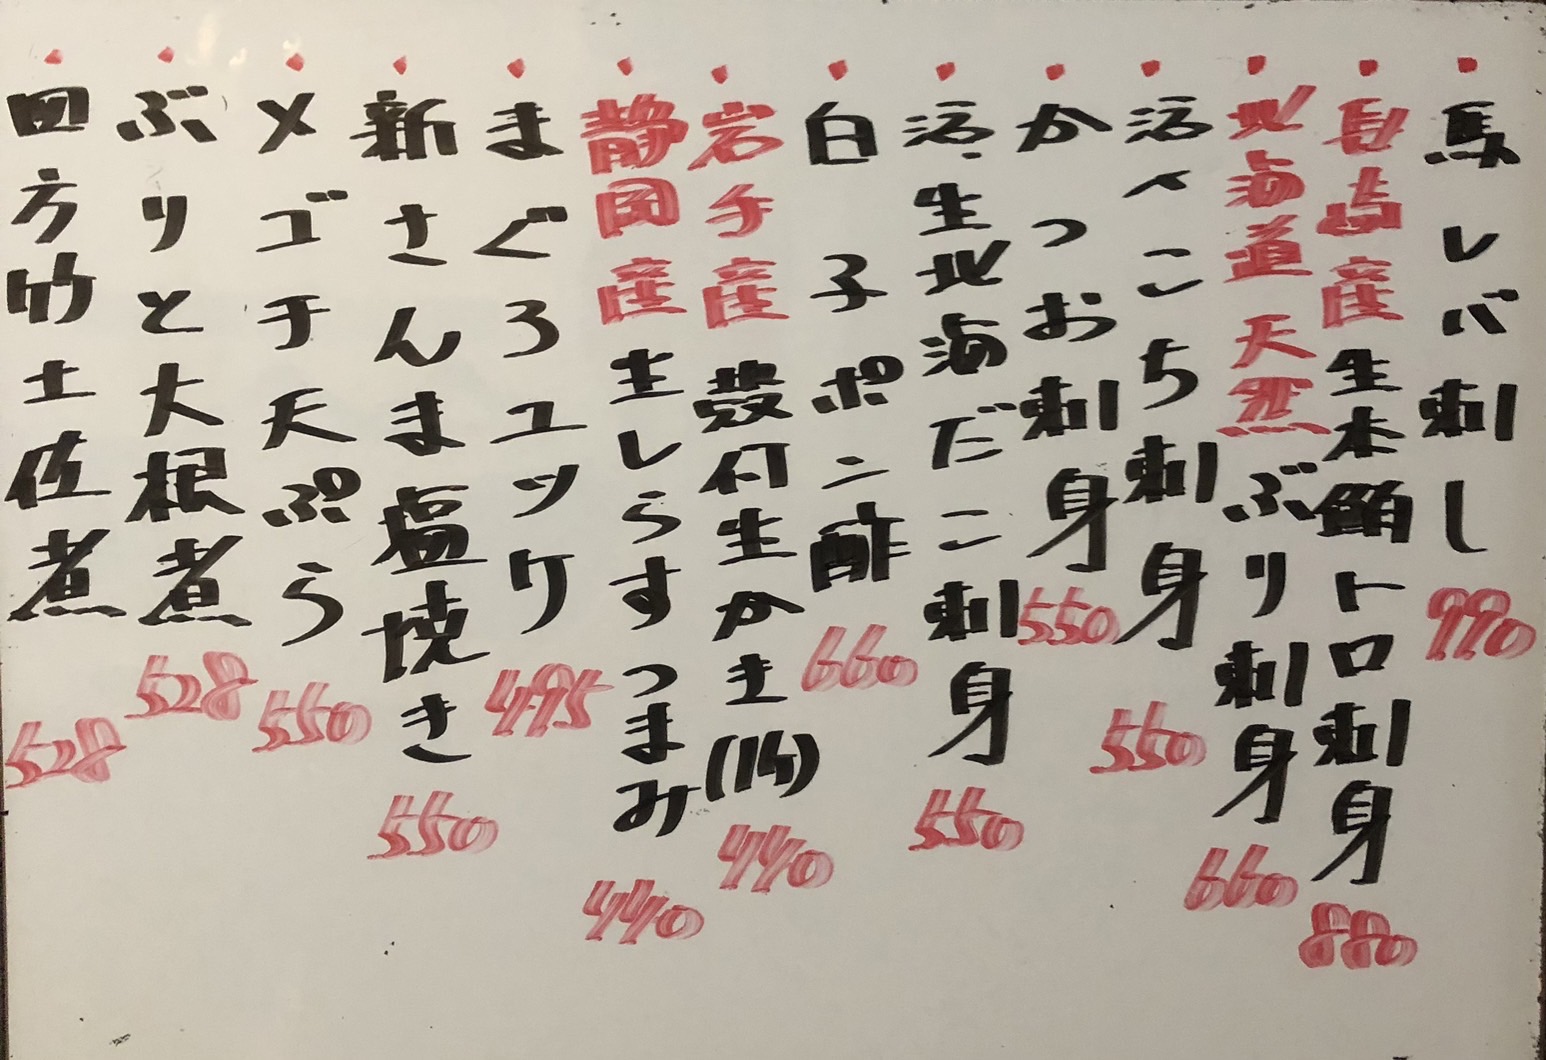 馬レバ刺し 990
長崎産 生本鮪トロ刺身 880
北海道 天然 ぶり刺身 660
活〆こち刺身 550
かつお刺身 550
活、生北海だこ刺身 550
白子ポン酢 660
岩手産 殻付生かき(1ケ) 440
静岡産 生しらすつまみ 440
まぐろユッケ 495
新さんま塩焼き 550
メゴチ天ぷら 550
ぶりと大根煮 528
四方竹土佐煮 528